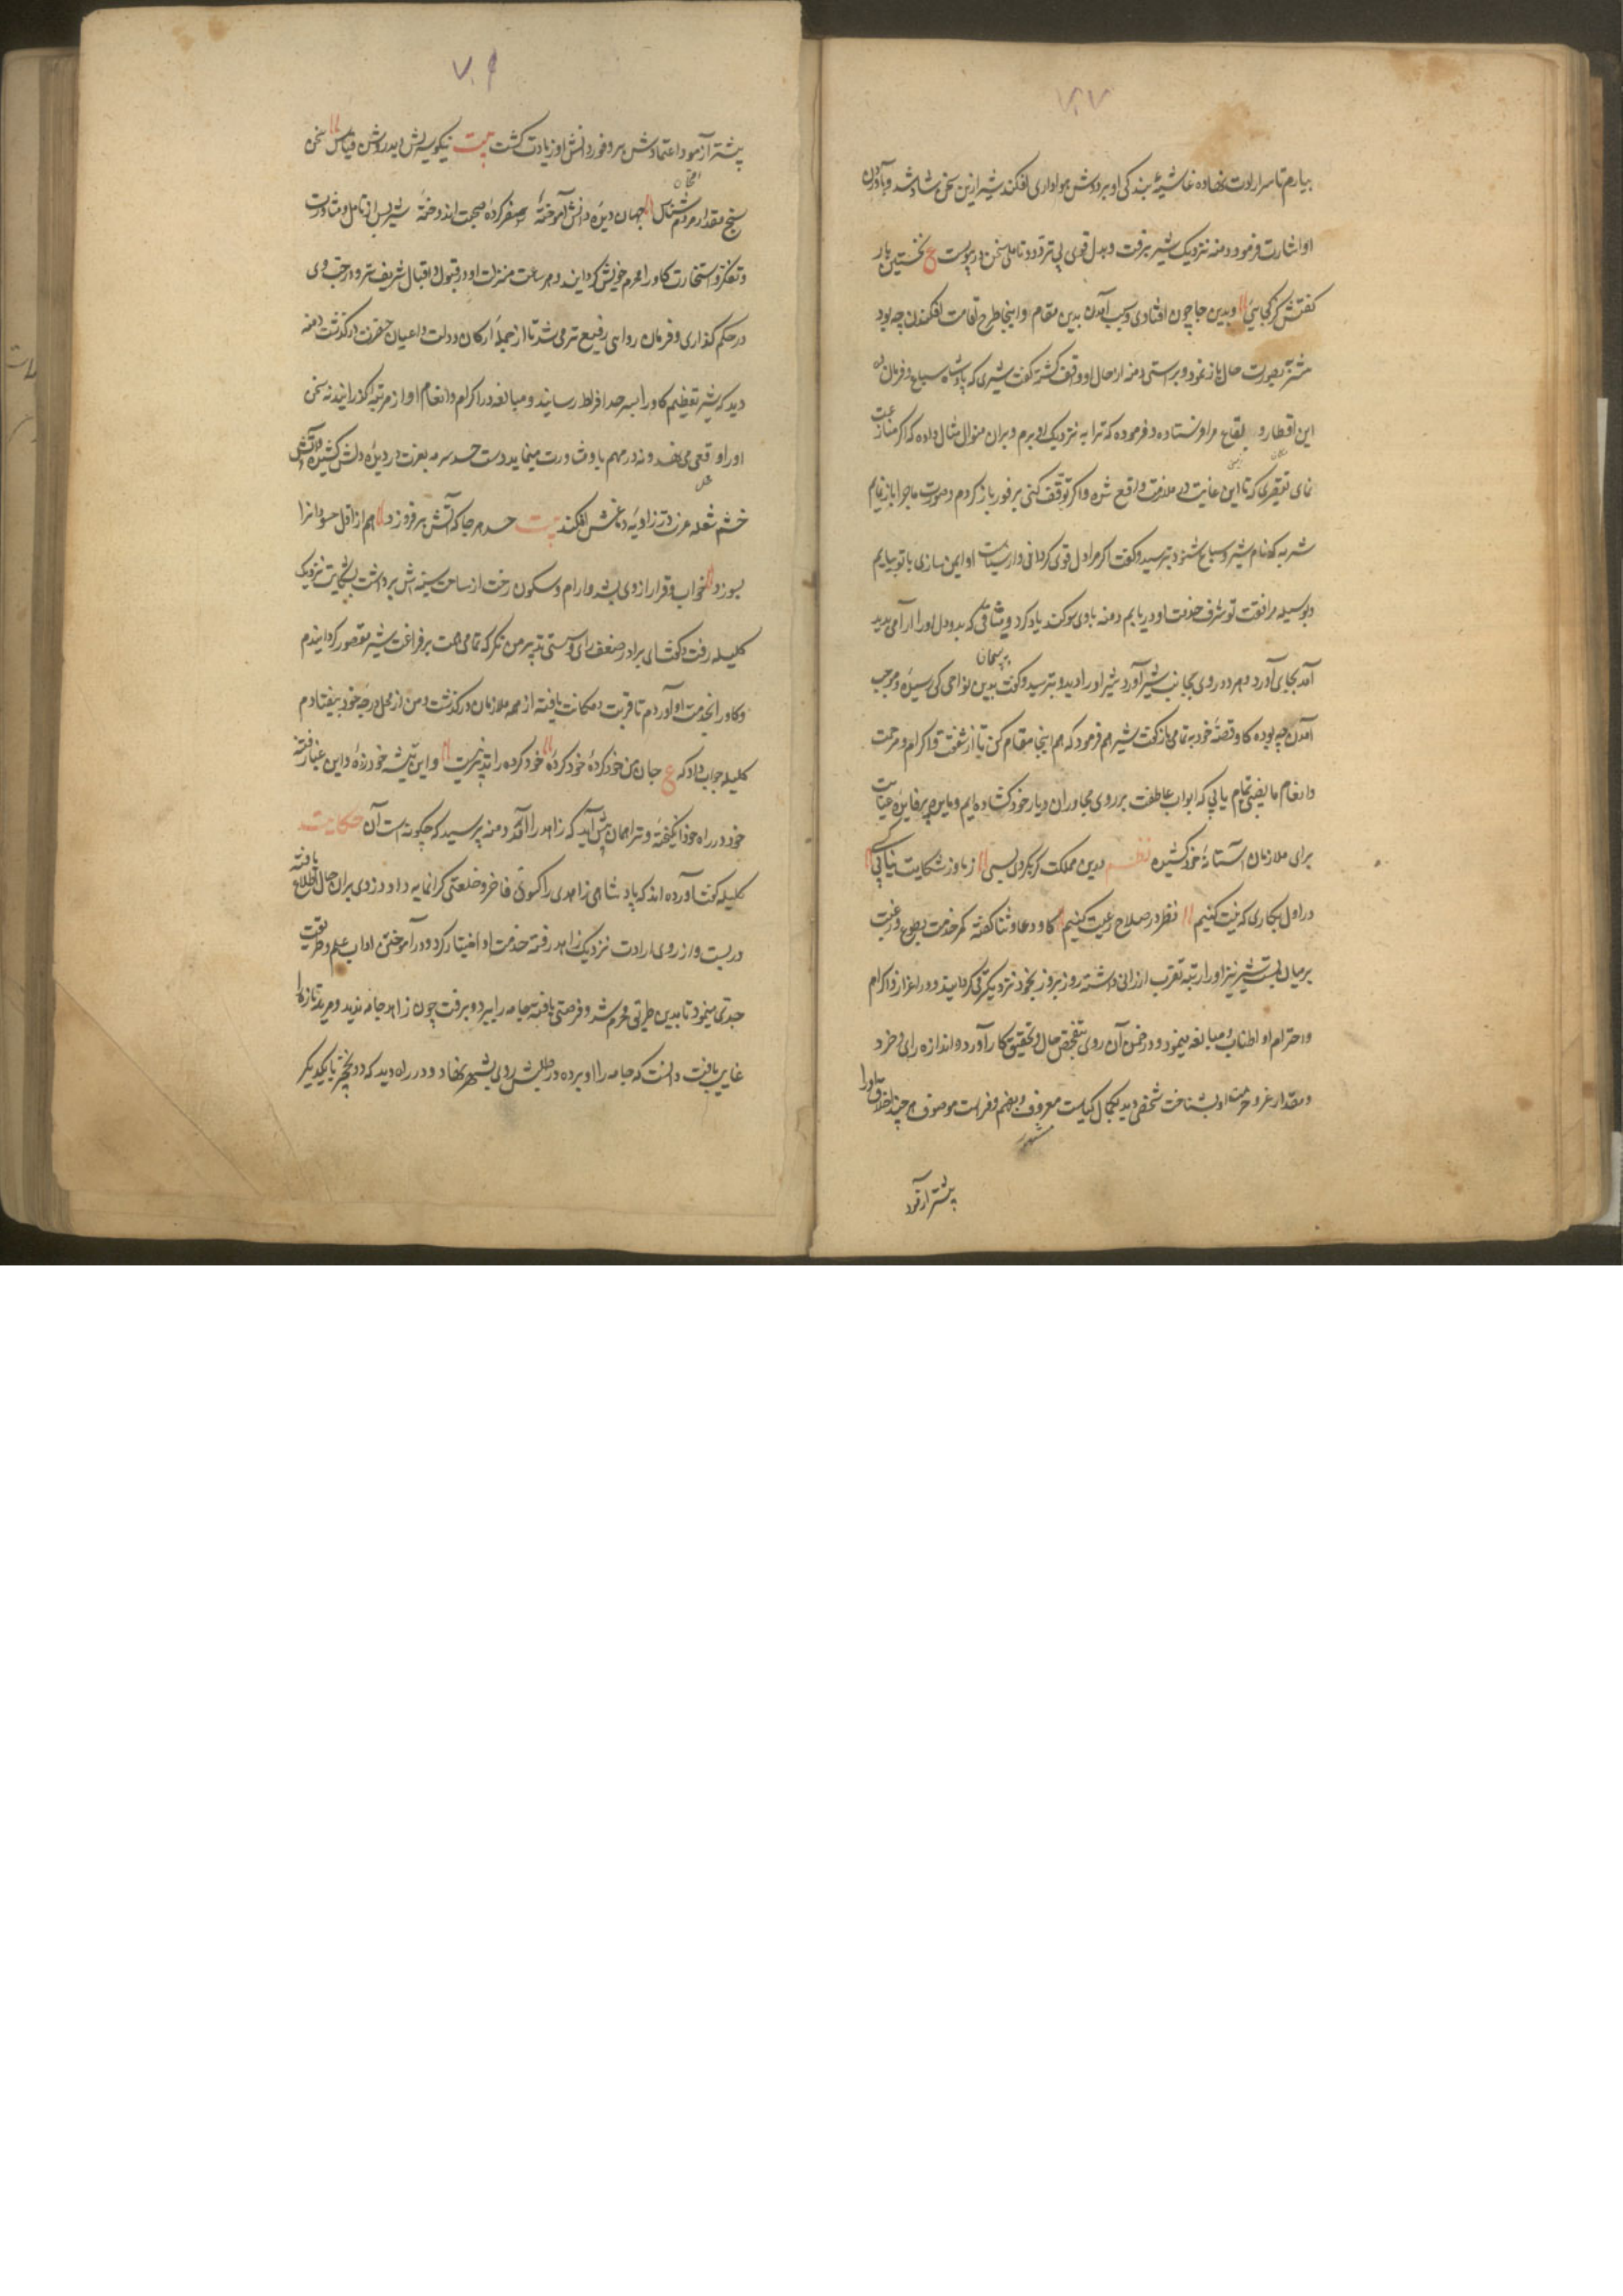 بیارم تا سر ارادت نهاده غاشیهٔ بندگی او بر دوش هواداری افکند شیر ازین سخن شاد شد و بآوردن
او اشارت فرمود دمنه نزدیک شنزبه رفت و بدل قوی بی تردد و تامل سخن در پیوست ع نخستین بار
گفتش کز کجایی وبدین جا چون افتادی و سبب آمدن بدین مقام و اینجا طرح اقامت افکندن چه بود
شنزبه صورت حال باز نمود و براستی دمنه از حال او واقف گشته گفت شیری که پادشاه سباع و فرمان ده
این اقطار و بقاع مرا فرستاده و فرموده که ترا به نزدیک او برم و بران منوال مثال داده که اگر مسارعت
نمای تقصیری که تا این غایت در ملازمت واقع شده و اگر توقف کنی بر فور بازگردم و صورت ماجرا باز نمایم
شنزبه که نام شیر و سباع شنود بترسید و گفت اگر مرا دل قوی گردانی و از سیاست او ایمن سازی با تو بیایم
و بوسیله مرافقت تو شرف خدمت او دریابم دمنه با وی سوگند یاد کرد و میثاقی که بدو دل او را آرامی پدید
آمد بجای آورد و هر دو روی بجانب شیر آورد شیر او را دید و بپرسید و گفت بدین نواحی کی رسیدهٔ و موجب
آمدن چه بوده گاو قصهٔ خود به تمامی باز گفت شیر هم فرمود که هم اینجا مقام کن تا از شفقت و اکرام و مرحمت
و انعام ما نصیبی تمام یابی که ابواب عاطفت بر روی مجاوران دیار خود گشاده ایم و مایدهٔ پرفایدهٔ عنایت
برای ملازمان آستانهٔ خود کشیده نظم درین مملکت گر بگردی بسی ز ما در شکایت نیابی کسی
در اول بکاری که نیت کنیم نظر در صلاح رعیت کنیم گاو دعا و ثنا گفته کمر خدمت بطوع و رغبت
بر میان بست شیر نیز او را رتبه تقرب ارزانی داشته روز بروز بخود نزدیکتر می گردانید و در اعزاز و اکرام
و احترام او اطناب و مبالغه مینمود و در ضمن آن روی بتفحص حال و تحقیق کار آورد و اندازه رای و خرد
و مقدار عز و حرمت او بشناخت شخصی دید بکمال کیاست معروف و بفهم و فراست موصوف هرچند اخلاق او را
مشهور
پیشتر آزمود
پیشتر آزمود اعتمادش بر وفور دانش او زیادت گشت بیت نیکو سیرتش دید و روشن قیاس سخن
سنج و مقدار مردم شناس جهان دیده و دانش آموخته سفر کرده و صحبت اندوخته شیر پس از تامل و مشاورت
و تفکر و استخارت گاو را محرم خویش گردانید و هر ساعت منزلت او در قبول و اقبال شریف تر و درجت وی
در حکم گذاری و فرمان روایی رفیع تر می شد تا از جمله ارکان دولت و اعیان حضرت درگذشت دمنه
دید که شیر تعظیم گاو را بسرحد افراط رسانید و مبالغه در اکرام و انعام او از مرتبه گذرانید نه سخن
او را وقعی می نهد و نه در مهم با وی مشاورت مینماید دست حسد سرمه بغیرت در دیده دلش کشید و آتش
خشم شعله غیرت در زاویه دماغش افکند بیت حسد هر جا که آتش بر فروزد هم از اول حسودانرا
بسوزد خواب و قرار از وی بشد و آرام و سکون رخت از ساحت سینه اش برداشت بشکایت نزدیک
کلیله رفت و گفت ای برادر ضعف رای و سستی تدبیر من نگر که تمامی همت بر فراغت شیر مقصور گردانیدم
و گاو را بخدمت او آوردم تا قربت و مکانت یافته از همه ملازمان درگذشت و من از محل و درجه خود بیفتادم
کلیله جواب داد که ع جان من خود کردهٔ خود کردهٔ خود کرده را تدبیر نیست و این تیشه خود زدهٔ و این غبار فتنه
خود در راه خود انگیختهٔ و ترا همان پیش آید که زاهد را آمد دمنه پرسید که چگونه است آن حکایت
کلیله گفت آورده اند که پادشاهی زاهدی را کسوتی فاخر و خلعتی گرانمایه داد دزدی بران حال اطلاع یافته
در بست و از روی ارادت نزدیک زاهد رفته خدمت او اختیار کرد و در آموختن آداب علم و طریقت
جدی مینمود تا بدین طریق محرم شد و فرصتی یافته جامه را ببرد و برفت چون زاهد جامه ندید و مرید تازه را
غایب یافت دانست که جامه را او برده در طلبش روی بشهر نهاد و در راه دید که دو نخچیر با یکدیگر